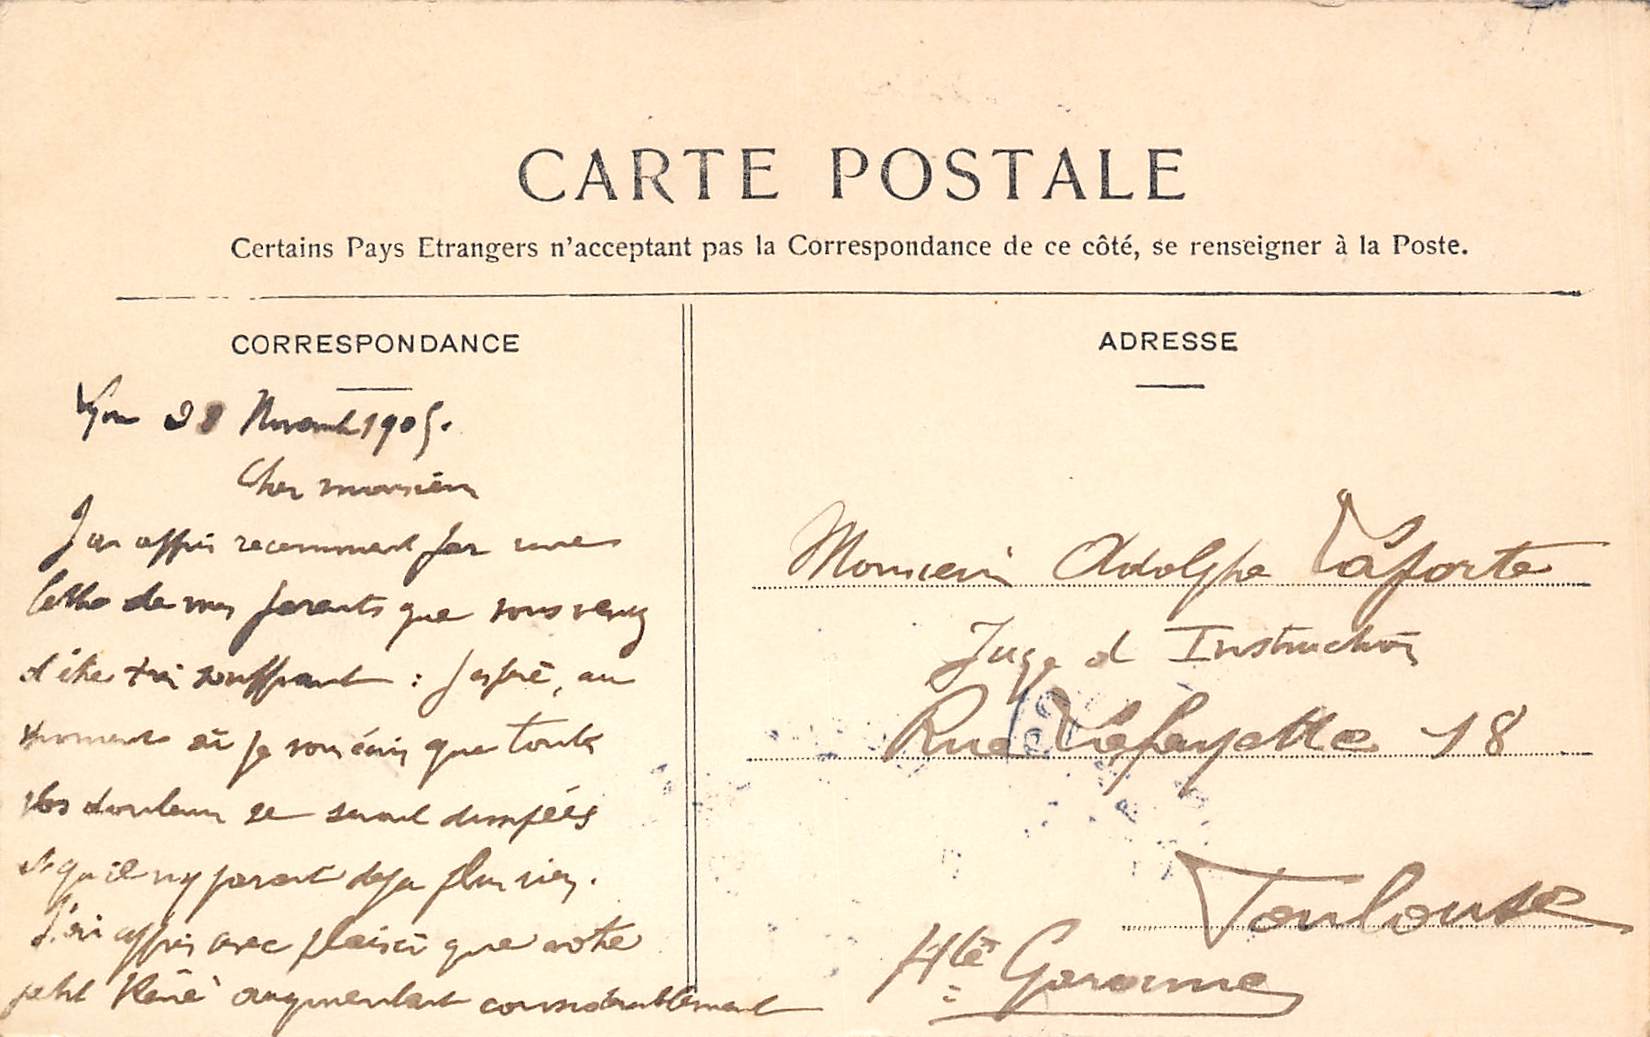 CARTE POSTALE
Certains Pays Etrangers n'acceptant pas la Correspondance de ce côté, se renseigner à la Poste.
CORRESPONDANCE
Lyon 28 Novemb 1905.
Cher monsieur
J'ai appris recemment par une
lettre de mes parents que vous venez
d'être très souffrant : J'espère, au
moment où je vous écris que toutes
vos douleurs se seront dissipées
et qu'il n'y parait deja plus rien.
J'ai appris avec plaisir que votre
petit Réné augmentait considérablement
ADRESSE
Monsieur Adolphe Laforte
Juge d Instruction
Rue Lafayette 18
Toulouse
Hte Garonne